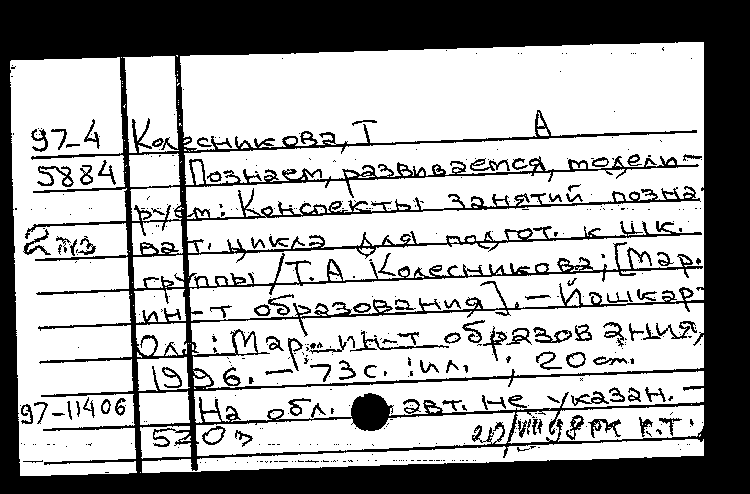 97-4 Колесникова, Т А
5884 Познаем, развиваемся, модели-
руем: Конспекты занятий позна-
2 экз ват. цикла для подгот. к шк.
группы / Т. А. Колесникова; [Мар.
ин-т образования]. — Йошкар-
Ола: Мар. ин-т образования,
1996. — 73 с. : ил. ; 20 см.
97-11406 На обл. авт. не указан. —
520э 20/VIII 98 РК К.Т.